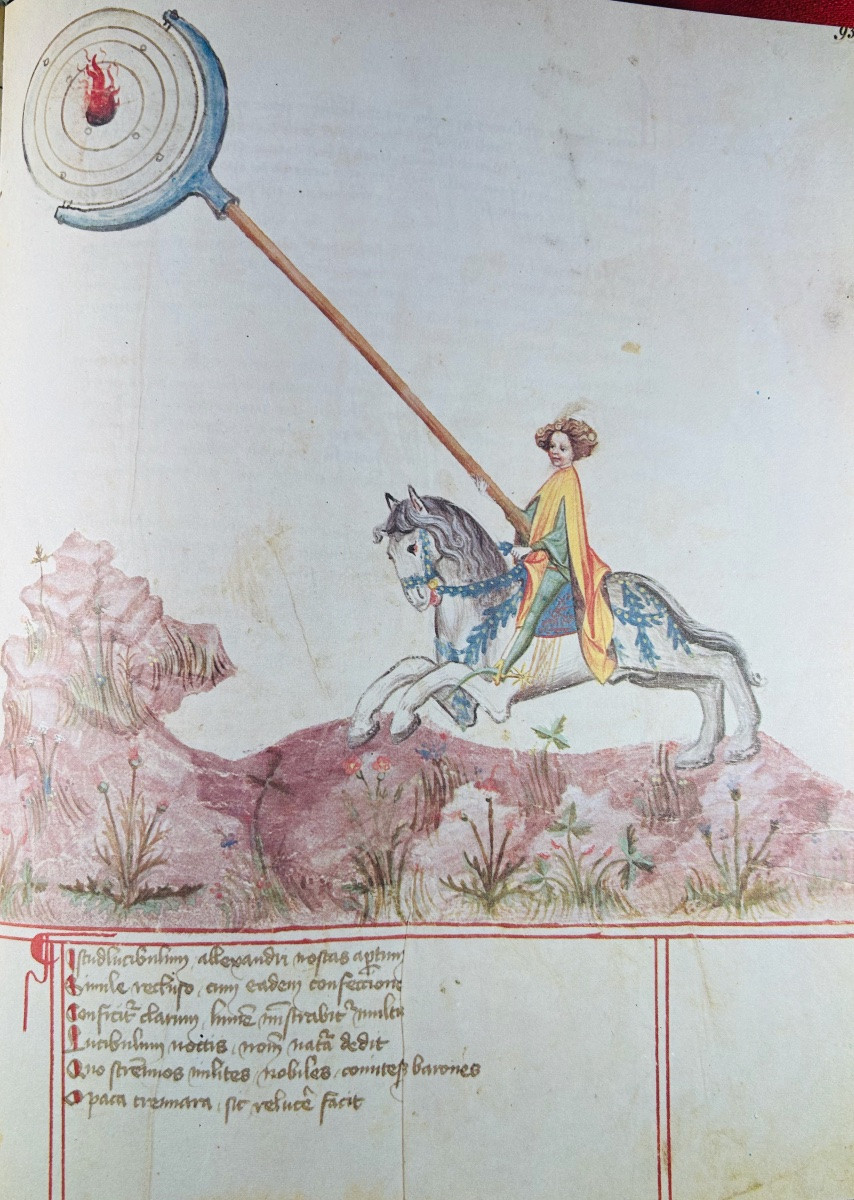 93
Istud lucibulum allexandri noscas apertum
Simile recluso cum eadem confeccione
Conficitr clarum lumen ministrabit multis
Lucibulum noctis nomen natura dedit
Quo strennuos milites nobiles comites barones
Opaca sic relucere facit